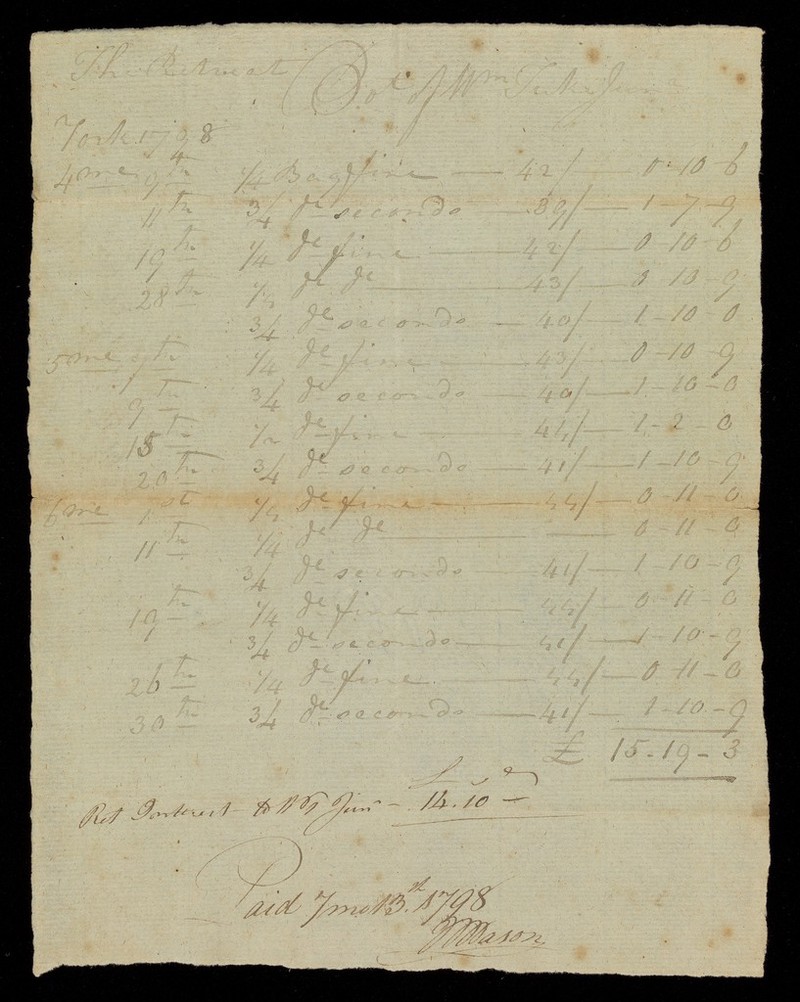 The Retreat Bot of Wm Tuke Junr
York 1798
4 mo 9th 1/4 Bag fine — 42/ — 0-10-6
11th 3/4 do seconds — 39/ — 1-7-9
19th 1/4 do fine — 42/ — 0-10-6
28th do do — 43/ — 0-10-9
3/4 do seconds — 40/ — 1-10-0
5 mo 1/4 do fine — 43/ — 0-10-9
9th 3/4 do seconds — 40/ — 1-10-0
15th 1/2 do fine — 44/ — 1-2-0
20th 3/4 do seconds — 41/ — 1-10-9
6 mo 1st 1/4 do fine — 44/ — 0-11-0
11th 1/4 do do — 0-11-0
3/4 do seconds — 41/ — 1-10-9
19th 1/4 do fine — 44/ — 0-11-0
3/4 do seconds — 41/ — 1-10-9
26th 1/4 do fine — 44/ — 0-11-0
30th 3/4 do seconds — 41/ — 1-10-9
£ 15-19-3
Interest
Paid 7 mo 13th 1798
Mason